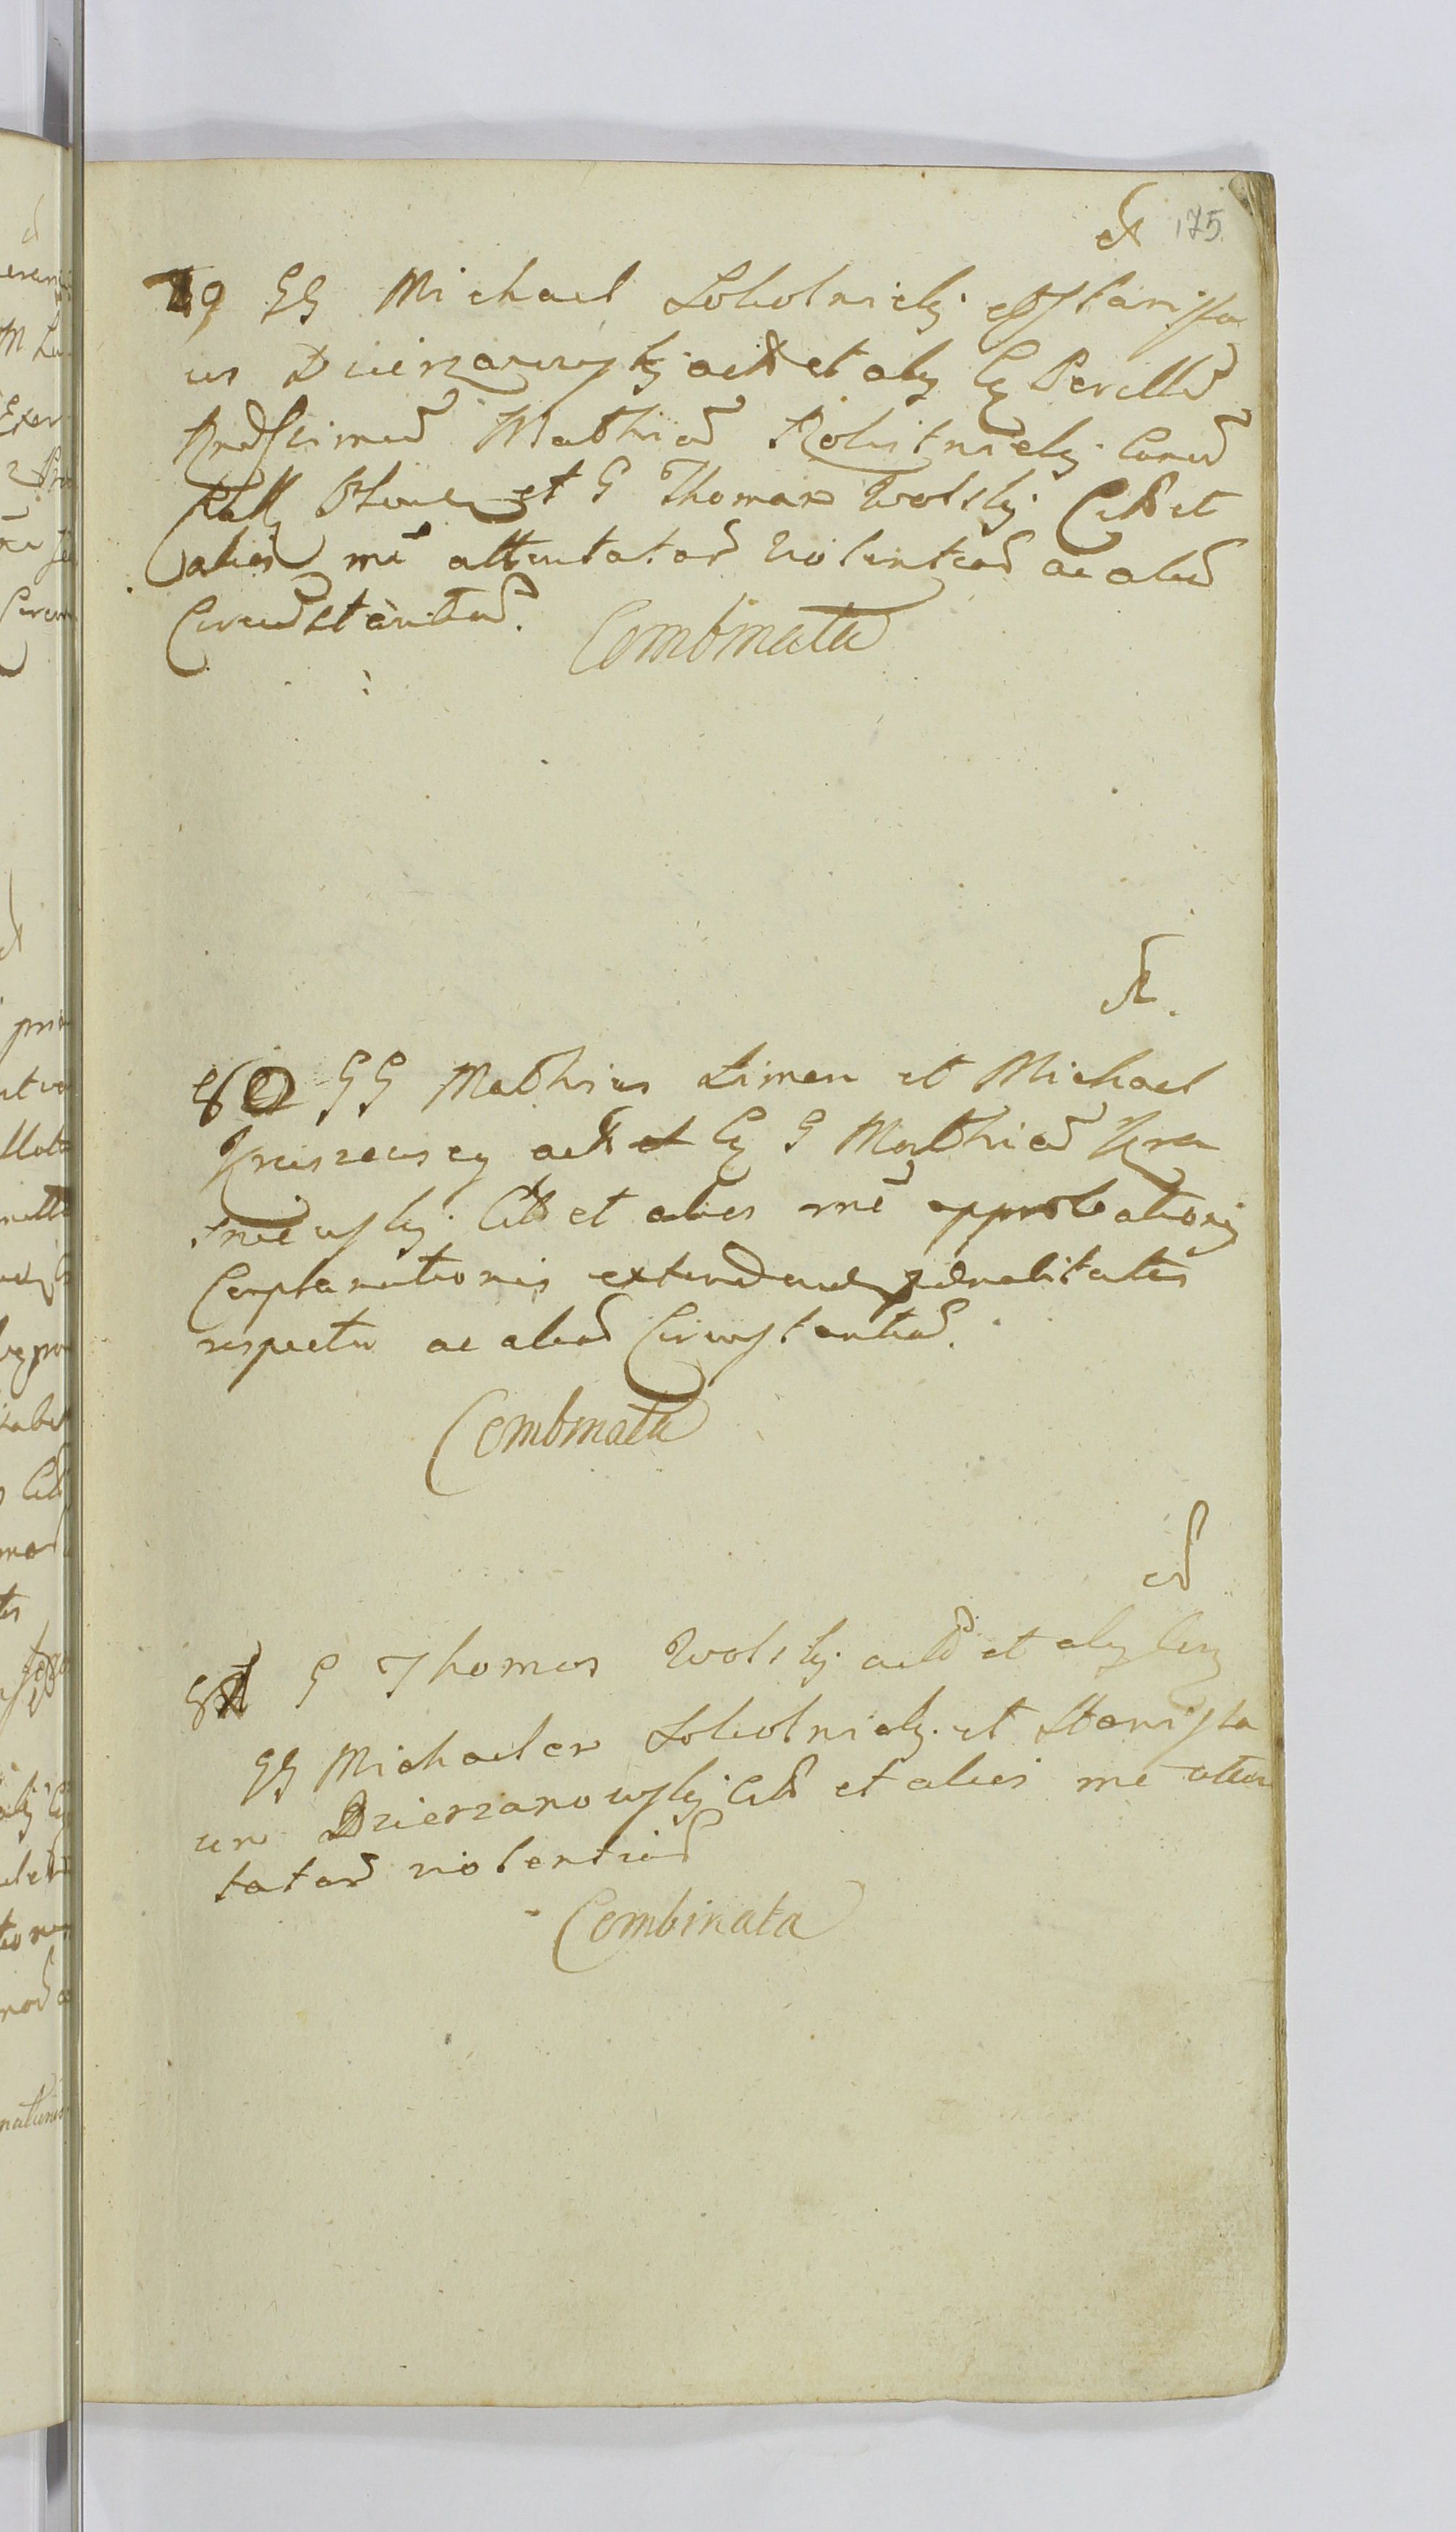 175.
79 GG Michael Sokolnicky et Stanisla
us Dzierzanowsky act et aly Cy Perillu
Rndssimu Mathia Rokitnicky Canu
et G Thomas Wolsky Citt et
alios me attentatar violentiar ac aliar
Circumstantiar.
Combinata
80 GG Mathias Liman et Michael
act et Cy G Mathia Kra
sniewsky Citt et alios me approbationis
Complanationis extendend paenalitatis
respectu ac aliar Circumstantiar.
Combinata
81 G Thomas Wolsky act et aly Cy
GG Michaelem Sokolnicky et Stanisla
um Dzierzanowsky Citt et alios me atten
tatar violentiar
Combinata